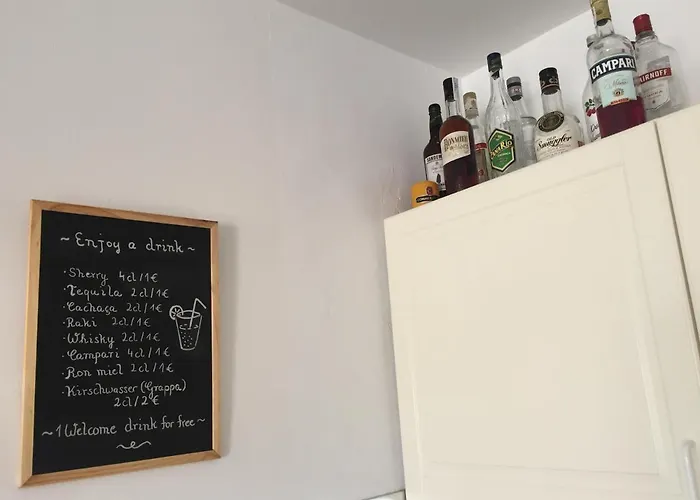 ~ Enjoy a drink ~
· Sherry 4cl/1€
· Tequila 2cl/1€
· Cachaça 2cl/1€
· Raki 2cl/1€
· Whisky 2cl/1€
· Campari 4cl/1€
· Ron miel 2cl/1€
· Kirschwasser (Grappa)
2cl/2€
~ 1 Welcome drink for free ~
SANDEMAN
RONMIEL
CANARIO
OLD
Smuggler
CAMPARI
SMIRNOFF